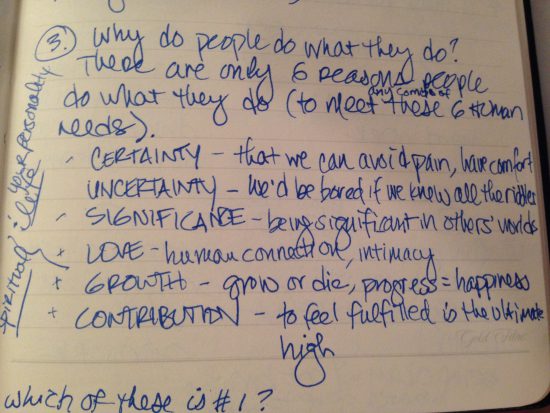 3. Why do people do what they do?
There are only 6 reasons people
do what they do (to meet these 6 human
any combo of
needs).
CERTAINTY – that we can avoid pain, have comfort
UNCERTAINTY – we'd be bored if we knew all the riddles
SIGNIFICANCE – being significant in others' worlds
+ LOVE – human connection, intimacy
+ GROWTH – grow or die, progress = happiness
+ CONTRIBUTION – to feel fulfilled is the ultimate
high
which of these is #1?
spiritual
your personality
Gold Fibre